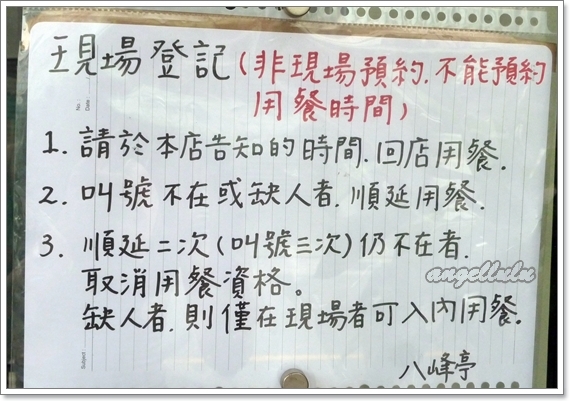 現場登記(非現場預約.不能預約
用餐時間)
1. 請於本店告知的時間.回店用餐.
2. 叫號不在或缺人者.順延用餐.
3. 順延二次(叫號三次)仍不在者.
取消用餐資格。
缺人者.則僅在現場者可入內用餐.
八峰亭
No.
Date
Subject
angellulu